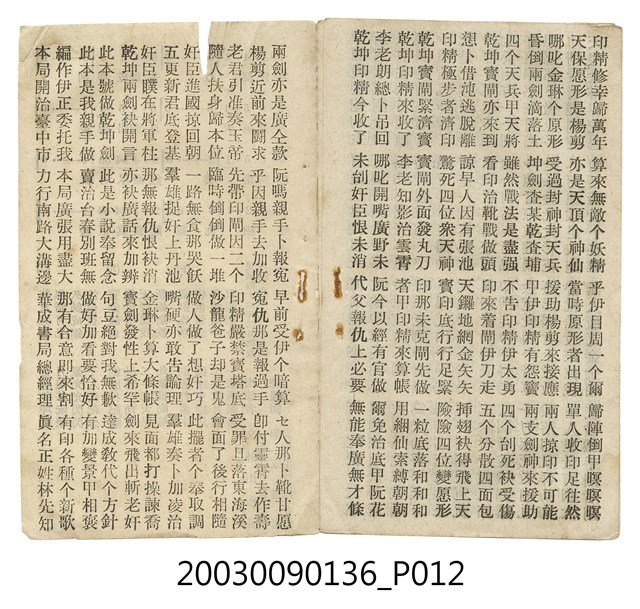 印精修幸歸萬年 算來無敵个妖精 乎伊目周一个爾 歸陣倒甲暝暝暝
天保愿形是楊剪 亦是天頂个神仙 當時原形者出現 單人收印足往然
哪叱金琳个原形 受過封神封天兵 援助楊剪來接應 兩人掠印不可能
昏倒兩劍滴落土 坤劍査某乾査埔 甲伊印精有怨妻 兩支劍神來援助
四个天兵甲天將 雖然戰法是盡强 不告印精伊太勇 四个刣死袂受傷
乾坤寶閘亦來到 看印治靴戰做頭 印來着閘伊刀走 五个分散四面包
想卜借沌逃脫離 諒早人因有張池 天羅地網金矢矢 挿翅袂得飛上天
印精極步者濟印 驚死四位衆天神 寶印底行行足緊 險險四位變原形
乾坤寶閘緊濟寶 寶閘外面發丸刀 印那未克閘先做 一粒底落和和和
乾坤印精來收了 李老知影治雲霄 者甲印精來算帳 用綑仙索縛朝朝
李老朗總卜吊回 哪叱開嘴廣野未 阮今以經有官做 爾免治底甲阮花
乾坤印精今收了 未刣奸臣恨未消 代父報仇上必要 無能奉廣無才條
兩劍亦是廣仝款 阮嗎親手卜報寃 早前受伊个暗算 七人那卜靴甘愿
楊剪近前來鬪求 乎因親手去加收 寃仇那是報過手 卽付靈霄去作壽
老君引准奏玉帝 先帶印閘因二个 印精嚴禁寶塔底 受罪且落東海溪
隨人扶身歸本位 臨時倒倒做一堆 沙龍爸子却是鬼 會面了後行相隨
奸臣進國掠回朝 一路無食那哭飫 做人做了想奸巧 此擺者个奉取調
五更新君底登基 羣雄捉奸上丹池 嘴硬亦敢告論理 羣雄奏卜加凌治
奸臣在將軍柱 那無報仇恨袂消 金琳卜算大條帳 見面都打操諫喬
乾坤兩劍袂開言 亦袂廣話來加辨 寶劍發性上希罕 劍來飛出斬老奸
此本號做乾坤劍 此是小說奉留念 句豆絕對我無歉 達成敎代个方針
此本是我親手做 賣治台春別班無 做好加看要恰好 有加變景甲相褒
編作伊正委托我 本局廣張用盡大 那有合意刷來割 有印各種个新歌
本局開治臺中市 力行南路大溝邊 華成書局總經理 眞名正姓林先知
20030090136_P012